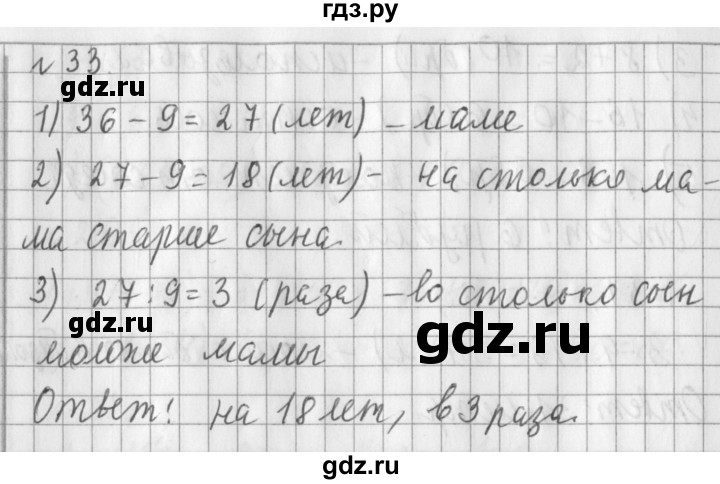 гдз.ру
№ 33
gdz.ru
1) 36 - 9 = 27 (лет) - маме
2) 27 - 9 = 18 (лет) - на столько ма-
ма старше сына.
3) 27 : 9 = 3 (раза) - во столько сын
gdz.ru
gdz.ru
моложе мамы
Ответ: на 18 лет, в 3 раза.
gdz.ru